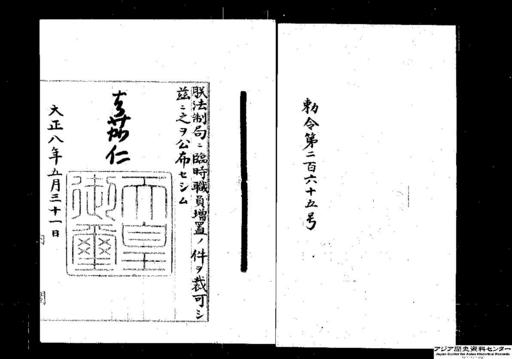 勅令第二百六十五号
朕法制局ニ臨時職員増置ノ件ヲ裁可シ
茲ニ之ヲ公布セシム
嘉仁
天皇
御璽
大正八年五月三十一日
アジア歴史資料センター
Japan Center for Asian Historical Records